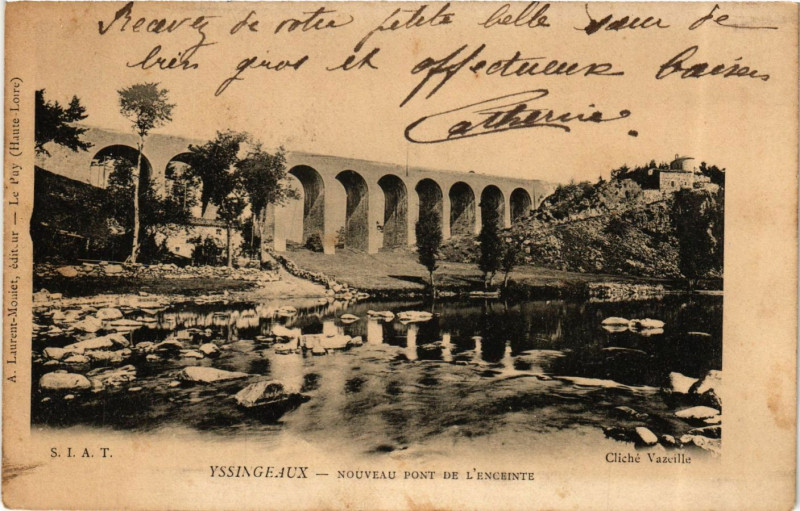 Recevez de votre petite belle sœur de
bien gros et affectueux baisers
Catherine.
A. Laurent-Moniet, éditeur — Le Puy (Haute-Loire)
S. I. A. T.
Cliché Vazeille
YSSINGEAUX — NOUVEAU PONT DE L'ENCEINTE